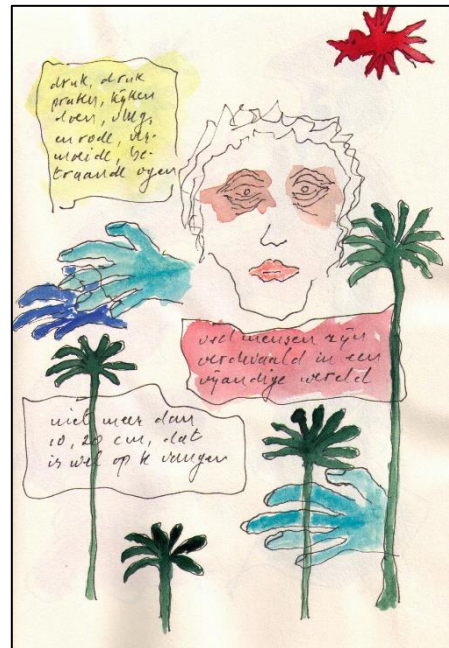 druk, druk
praten, kijken
doen, vlug,
en rode, ver-
moeide, be-
traande ogen
veel mensen zijn
verdwaald in een
vijandige wereld
niet meer dan
10, 20 cm, dat
is wel op te vangen